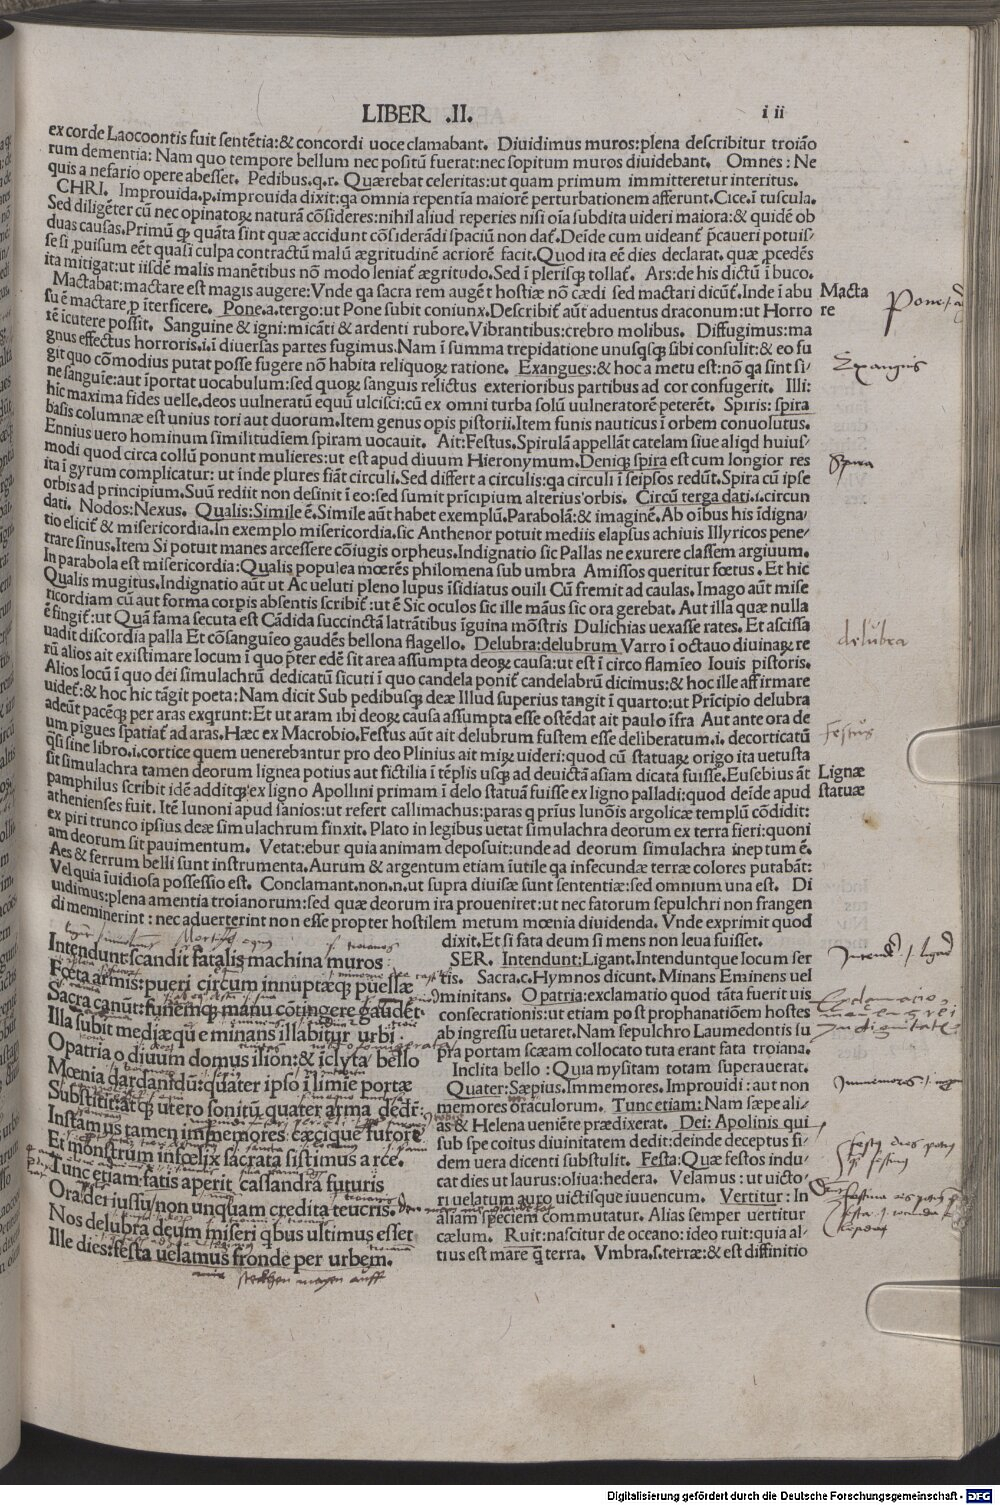 LIBER .II.
i ii
ex corde Laocoontis fuit sentẽtia:& concordi uoce clamabant. Diuidimus muros:plena describitur troiãο
rum dementia: Nam quo tempore bellum nec positũ fuerat:nec sopitum muros diuidebant. Omnes: Ne
quis a nefario opere abesset. Pedibus.q.r. Quærebat celeritas:ut quam primum immitteretur interitus.
CHRI. Improuida.p.improuida dixit:qa omnia repentĩa maiorẽ perturbationem afferunt.Cice.ĩ tuscula.
Sed diligẽter cũ nec opinatoꝝ naturã cõsideres:nihil aliud reperies nisi oĩa subdita uideri maiora:& quidẽ ob
duas causas.Primũ ꝙ quãta sint quæ accidunt cõsiderãdi spaciũ non dat̃.Deĩde cum uideant̃ p̃caueri potuis/
se si ꝓuisum eẽt quasi culpa contractũ malũ ægritudinẽ acriorẽ facit.Quod ita eẽ dies declarat. quæ ꝓcedẽs
ita mitigat:ut iisdẽ malis manẽtibus nõ modo leniat̃ ægritudo.Sed ĩ plerisqꝫ tollat̃. Ars:de his dictũ ĩ buco.
Mactabat:mactare est magis augere:Vnde qa sacra rem augẽt hostiæ nõ cædi sed mactari dicũt̃.Inde ĩ abu
su ẽ mactare ꝓ ĩterficere. Pone.a.tergo:ut Pone subit coniunx.Describit̃ aũt aduentus draconum:ut Horro
rẽ ĩcutere possit. Sanguine & igni:micãti & ardenti rubore.Vibrantibus:crebro molibus. Diffugimus:ma
gnus effectus horroris.i.ĩ diuersas partes fugimus.Nam ĩ summa trepidatione unusqsqꝫ sibi consulit:& eo fu
git quo cõmodius putat posse fugere nõ habita reliquoꝝ ratione. Exangues:& hoc a metu est:nõ qa sint si/
ne sanguĩe:aut ĩportat uocabulum:sed quoꝝ sanguis relictus exterioribus partibus ad cor confugerit. Illi:
hic maxima fides uelle.deos uulneratũ equũ ulcisci:cũ ex omni turba solũ uulneratorẽ peterẽt. Spiris: spira
basis columnæ est unius tori aut duorum.Item genus opis pistorii.Item funis nauticus ĩ orbem conuolutus.
Ennius uero hominum similitudĩem spiram uocauit. Ait:Festus.Spirulã appellãt catelam siue aliqd huius/
modi quod circa collũ ponunt mulieres:ut est apud diuum Hieronymum.Deniqꝫ spira est cum longior res
ita ĩ gyrum complicatur: ut inde plures fiãt circuli.Sed differt a circulis:qa circuli ĩ seipsos redũt.Spira cũ ipse
orbis ad principium.Suũ rediit non desinit ĩ eo:sed sumit prĩcipium alterius orbis. Circũ terga dati.i.circun
dati. Nodos:Nexus. Qualis:Simile ẽ.Simile aũt habet exemplũ.Parabolã:& imaginẽ.Ab oĩbus his ĩdigna/
tio elicit̃ & misericordia.In exemplo misericordia.sic Anthenor potuit mediis elapsus achiuis Illyricos pene/
trare sinus.Item Si potuit manes arcessere cõiugis orpheus.Indignatio sic Pallas ne exurere classem argiuum.
In parabola est misericordia:Qualis populea mœrẽs philomena sub umbra Amissos queritur fœtus. Et hic
Qualis mugitus.Indignatio aũt ut Ac ueluti pleno lupus ĩsidiatus ouili Cũ fremit ad caulas. Imago aũt mise
ricordiam cũ aut forma corpis absentis scribit̃:ut ẽ Sic oculos sic ille mãus sic ora gerebat. Aut illa quæ nulla
ẽ fingit̃:ut Quã fama secuta est Cãdida succinctã latrãtibus ĩguina mõstris Dulichias uexasse rates. Et ascissa
uadit discordia palla Et cõsanguĩeo gaudẽs bellona flagello. Delubra:delubrum Varro ĩ octauo diuinaꝝ re
rũ alios ait existimare locum ĩ quo p̃ter edẽ sit area assumpta deoꝝ causa:ut est ĩ circo flamĩeo Iouis pistoris.
Alios locũ ĩ quo dei simulachrũ dedicatũ sicuti ĩ quo candela ponit̃ candelabrũ dicimus:& hoc ille affirmare
uidet̃:& hoc hic tãgit poeta:Nam dicit Sub pedibusqꝫ deæ Illud superius tangit ĩ quarto:ut Prĩcipio delubra
adeũt pacẽqꝫ per aras exqrunt:Et ut aram ibi deoꝝ causa assumpta esse ostẽdat ait paulo ĩfra Aut ante ora de
um pĩgues spatiat̃ ad aras.Hæc ex Macrobio.Festus aũt ait delubrum fustem esse deliberatum.i. decorticatũ
q̃si sine libro.i.cortice quem uenerebantur pro deo Plinius ait miꝝ uideri:quod cũ statuaꝝ origo ita uetusta
sit simulachra tamen deorum lignea potius aut fictilia ĩ tẽplis usqꝫ ad deuictã asiam dicata fuisse.Eusebius ãt
pamphilus scribit idẽ additqꝫ ex ligno Apollini primam ĩ delo statuã fuisse ex ligno palladi:quod deĩde apud
athenienses fuit. Itẽ Iunoni apud sanios:ut refert callimachus:paras q prius Iunõis argolicæ templũ cõdidit:
ex piri trunco ipsius deæ simulachrum finxit. Plato in legibus uetat simulachra deorum ex terra fieri:quoni
am deorum sit pauimentum. Vetat:ebur quia animam deposuit:unde ad deorum simulachra ineptum ẽ.
Aes & ferrum belli sunt instrumenta.Aurum & argentum etiam ĩutile qa infecundæ terræ colores putabãt:
Vel quia ĩuidiosa possessio est. Conclamant.non.n.ut supra diuisæ sunt sententiæ:sed omnium una est. Di
uidimus:plena amentia troianorum:sed quæ deorum ira proueniret:ut nec fatorum sepulchri non frangen
di meminerint : nec aduerterint non esse propter hostilem metum mœnia diuidenda. Vnde exprimit quod
dixit.Et si fata deum si mens non leua fuisset.
Macta
re
Exangues
Spira
delubra
Festus
Lignæ
statuæ
Intendunt:scandit fatalis machina muros
Fœta armis:pueri circum innuptæqꝫ puellæ
Sacra canũt:funemqꝫ manu cõtingere gaudẽt
Illa subit mediæqu e minans illabitur urbi
O patria o diuum domus ilion:& ĩclyta bello
Mœnia dardanidũ:quater ipso ĩ limie portæ
Substitit:atqꝫ utero sonitũ quater arma dedẽr:
Instamus tamen immemores cæcique furore
Et monstrum infœlix sacrata sistimus arce.
Tunc etiam fatis aperit cassandra futuris
Ora:dei iussu non unquam credita teucris.
Nos delubra deum miseri qbus ultimus esset
Ille dies:festa uelamus fronde per urbem.
SER. Intendunt:Ligant.Intenduntque locum ser
tis. Sacra.c.Hymnos dicunt.Minans Eminens uel
minitans. O patria:exclamatio quod tãta fuerit uis
consecrationis:ut etiam post prophanatiõem hostes
ab ingressu uetaret.Nam sepulchro Laumedontis su
pra portam scæam collocato tuta erant fata troiana.
Inclita bello : Quia mysitam totam superauerat.
Quater:Sæpius.Immemores.Improuidi:aut non
memores oraculorum. Tunc etiam: Nam sæpe ali/
as & Helena ueniẽte prædixerat. Dei: Apolinis qui
sub spe coitus diuinitatem dedit:deinde deceptus fi/
dem uera dicenti substulit. Festa:Quæ festos indu/
cat dies ut laurus:oliua:hedera. Velamus : ut uicto/
ri uelatum auro uictisque iuuencum. Vertitur: In
aliam speciem commutatur. Alias semper uertitur
cælum. Ruit:nascitur de oceano: ideo ruit:quia al/
tius est mare q̃ terra. Vmbra.s.terræ:& est diffinitio
Digitalisierung gefördert durch die Deutsche Forschungsgemeinschaft - DFG